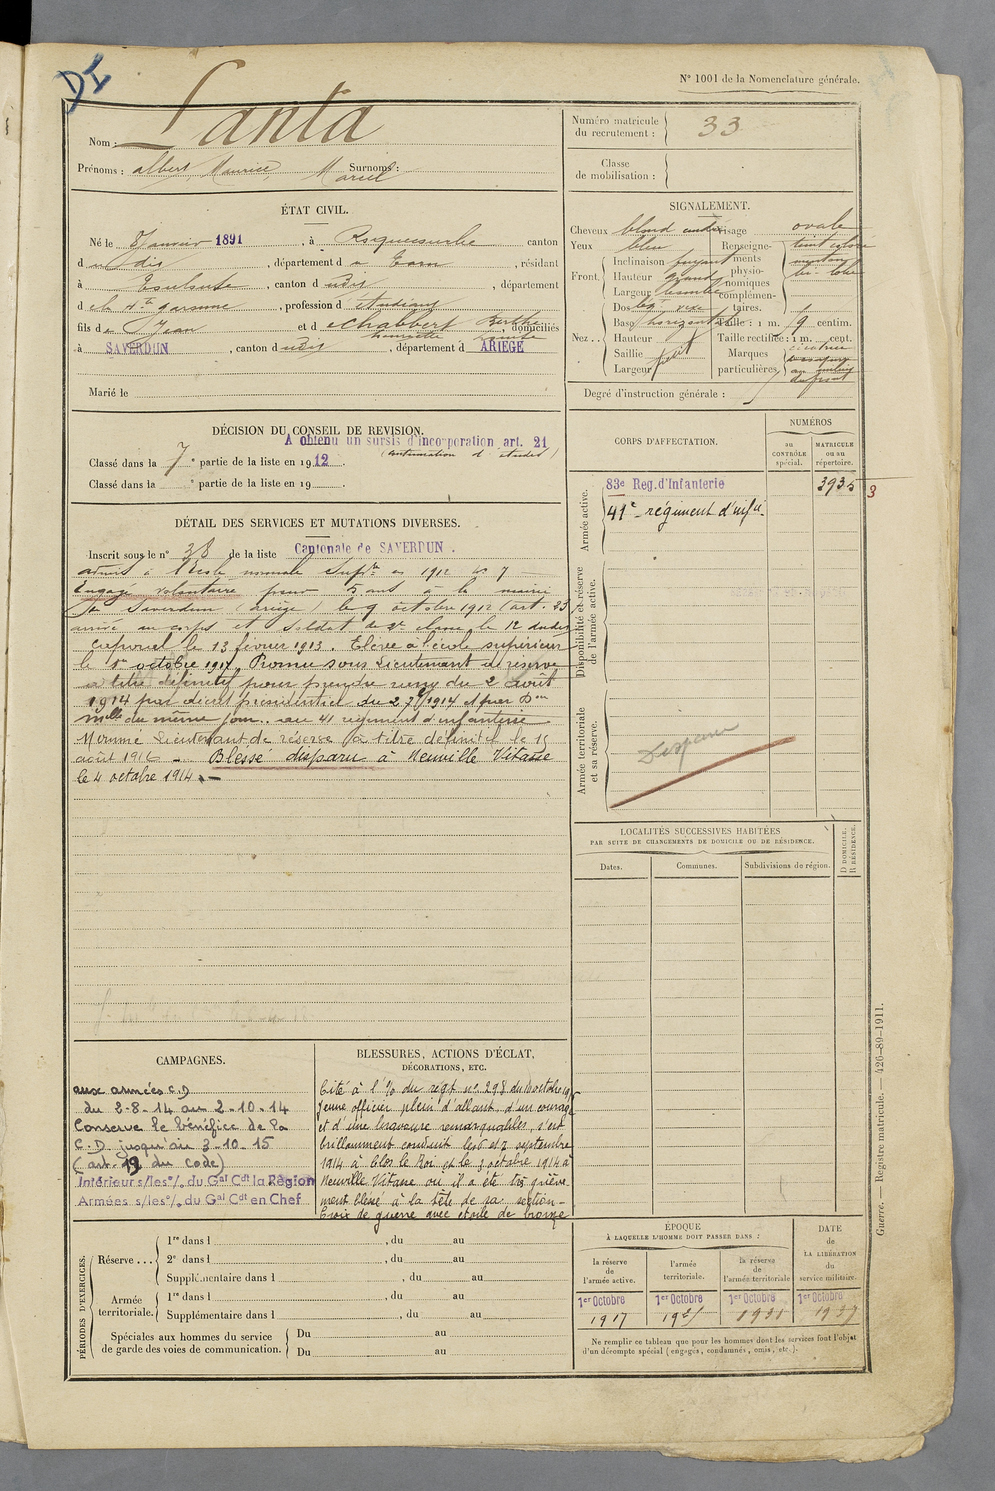 DI
N° 1001 de la Nomenclature générale.
Nom : Lanta
Prénoms : albert, Maurice, Marcel Surnoms :
Numéro matricule du recrutement : 33
Classe de mobilisation :
ÉTAT CIVIL.
Né le 8 Janvier 1891, à Roquecourbe canton
d udis, département d u Tarn, résidant
à Toulouse, canton d udis, département
d e la Hte garonne, profession d étudiant
fils de Jean et d e Chabbert Berthe Henriette, domiciliés
à SAVERDUN, canton d udis, département d ARIEGE
Marié le
SIGNALEMENT.
Cheveux blond Visage ovale
Yeux bleu
Front. Inclinaison fuyant
Hauteur grand
Largeur
Nez. . Dos
Base horizontale
Hauteur
Saillie petit
Largeur
Renseignements physionomiques complémentaires. teint coloré menton bi-lobé
Taille : 1 m. 9 centim.
Taille rectifiée : 1 m. cent.
Marques particulières cicatrice au milieu du front
Degré d'instruction générale :
DÉCISION DU CONSEIL DE REVISION.
A obtenu un sursis d'incorporation art. 21
(continuation d'études)
Classé dans la 7e partie de la liste en 1912.
Classé dans la e partie de la liste en 19 .
CORPS D'AFFECTATION.
NUMÉROS
au CONTRÔLE spécial.
MATRICULE ou au répertoire.
Armée active.
83e Reg. d'Infanterie 3935 3
41e régiment d'infie.
Disponibilité et réserve de l'armée active.
Armée territoriale et sa réserve.
Disparu
DÉTAIL DES SERVICES ET MUTATIONS DIVERSES.
Inscrit sous le n° 38 de la liste Cantonale de SAVERDUN.
admis à l'école normale Supre en 1912 n° 7
Engagé volontaire pour 5 ans à la mairie
de Saverdun (ariège) le 9 octobre 1912 (art. 23
arrivé au corps et soldat de 2e classe le 12 dudit
Caporal le 13 février 1913. Elève à l'école supérieure
le 1er octobre 1914. Promu sous Lieutenant de réserve
à titre définitif pour prendre rang du 2 août
1914 par décret présidentiel du 27/7/1914 et par Don
mlle du même jour, au 41 régiment d'infanterie
Nommé Lieutenant de réserve à titre définitif le 15
août 1916 - Blessé disparu à Neuville Vitasse
le 4 octobre 1914. -
LOCALITÉS SUCCESSIVES HABITÉES
PAR SUITE DE CHANGEMENTS DE DOMICILE OU DE RÉSIDENCE.
Dates. Communes. Subdivisions de région. D DOMICILE. R RÉSIDENCE.
CAMPAGNES.
aux armées C.D
du 2-8-14 au 2-10-14
Conserve le bénéfice de la
C.D jusqu'au 3-10-15
(art. 19 du Code)
Intérieur s/les o/. du Gal Cdt la Région
Armées s/les o/. du Gal Cdt en Chef
BLESSURES, ACTIONS D'ÉCLAT,
DÉCORATIONS, ETC.
Cité à l'% du regt n° 298 du 10 octobre
Jeune officier plein d'allant, d'un courage
et d'une bravoure remarquables, s'est
brillamment conduit les 6 et 7 septembre
1914 à Clos le Roi et le 3 octobre 1914 à
Neuville Vitasse ou il a été très griève-
ment blessé à la tête de sa section -
Croix de guerre avec étoile de bronze
PÉRIODES D'EXERCICES.
Réserve . . . 1re dans l , du au
2e dans l , du au
Supplémentaire dans l , du au
Armée territoriale. 1re dans l , du au
Supplémentaire dans l , du au
Spéciales aux hommes du service de garde des voies de communication. Du au
Du au
ÉPOQUE
À LAQUELLE L'HOMME DOIT PASSER DANS :
la réserve de l'armée active.
l'armée territoriale.
la réserve de l'armée territoriale
DATE de LA LIBÉRATION du service militaire.
1er Octobre 1917
1er Octobre 1921
1er Octobre 1931
1er Octobre 1937
Ne remplir ce tableau que pour les hommes dont les services font l'objet
d'un décompte spécial (engagés, condamnés, omis, etc.).
Guerre. — Registre matricule. — 426-89-1911.